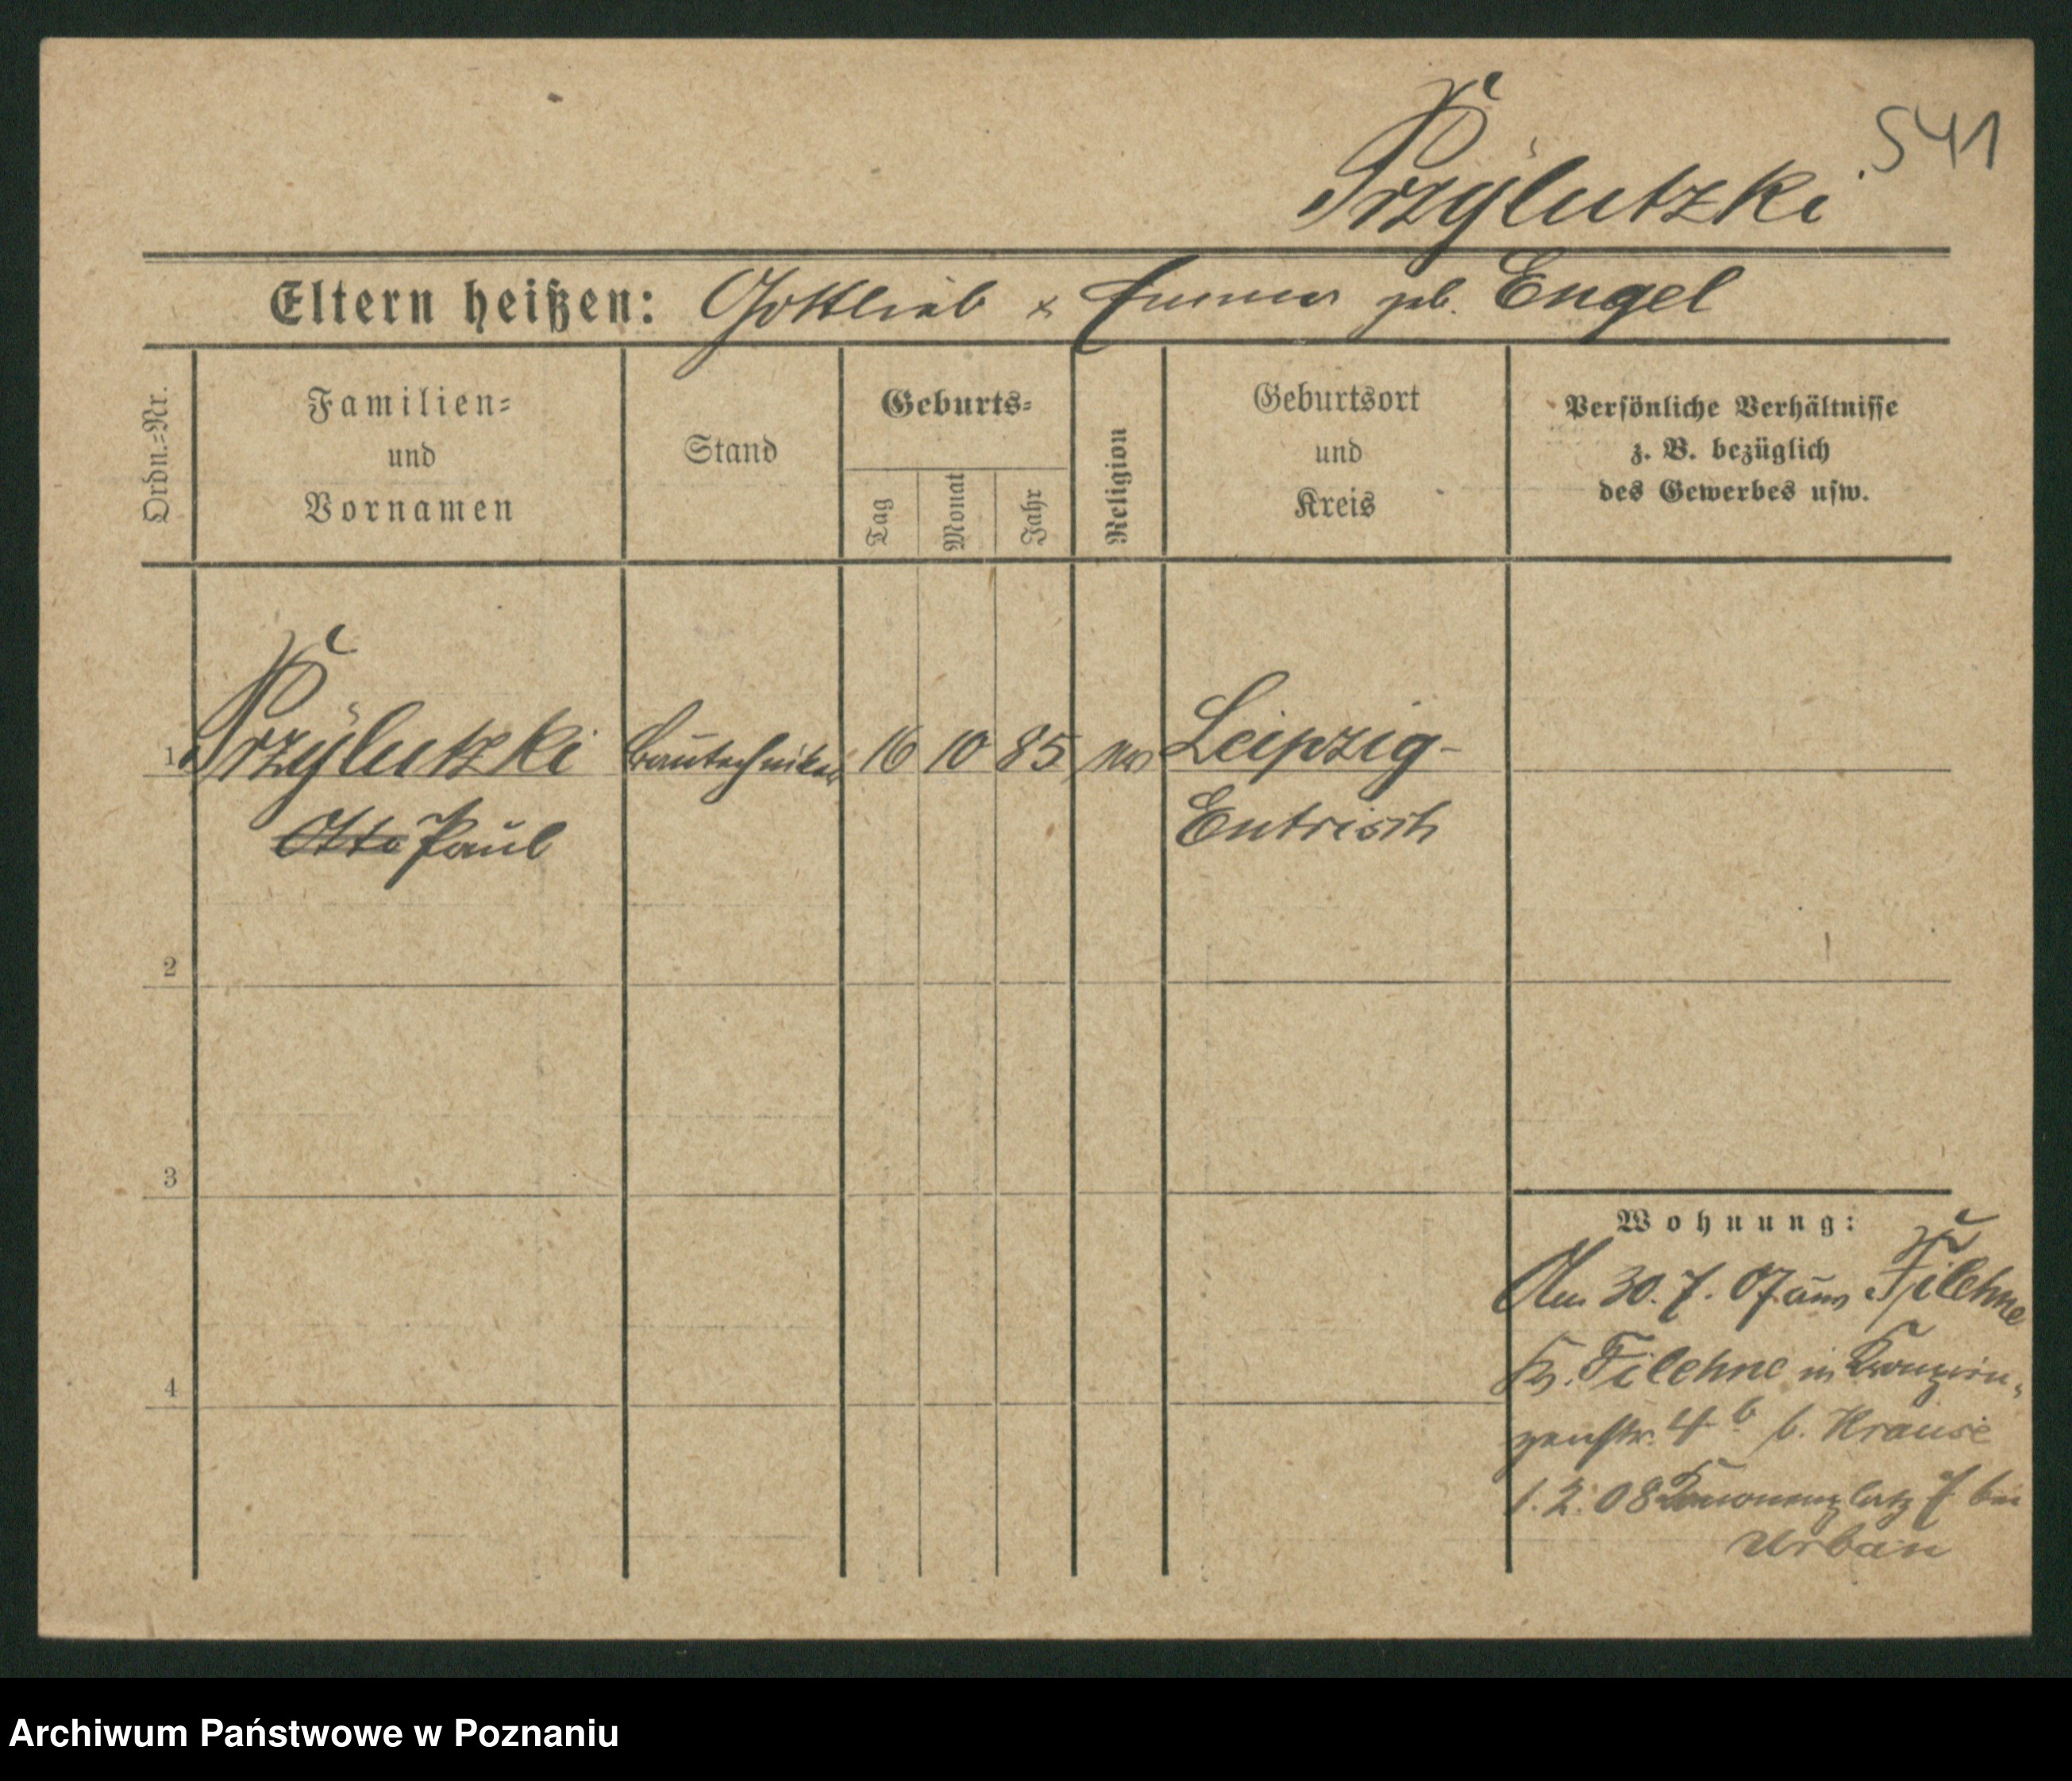 541
Przÿlutzki
Eltern heißen: Gottlieb & Emma geb. Engel
Ordn.=Nr.
Familien=
und
Vornamen
Stand
Geburts=
Tag
Monat
Jahr
Religion
Geburtsort
und
Kreis
Persönliche Verhältnisse
z. B. bezüglich
des Gewerbes usw.
1 Przÿlutzki Bautechniker 16 10 85 Leipzig-
Otto Paul Eutrisch
2
3
4
Wohnung:
Am 30. 7. 07 aus Filehne
Kr. Filehne in Kronprin-
zenstr. 4b b. Krause
1. 2. 08 7 bei
Urban
Archiwum Państwowe w Poznaniu